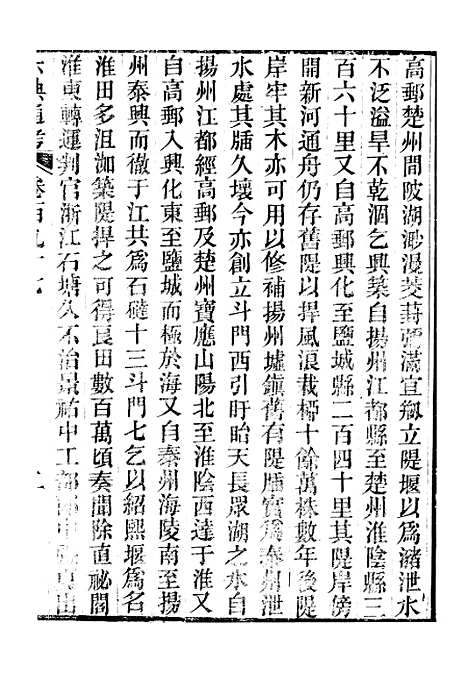 高郵楚州間陂湖渺漫茭葑彌滿宜剏立隄堰以爲瀦泄水
不泛溢旱不乾涸乞興築自揚州江都縣至楚州淮陰縣三
百六十里又自高郵興化至鹽城縣二百四十里其隄岸傍
開新河通舟仍存舊隄以捍風浪栽柳十餘萬株數年後隄
岸牢其木亦可用以修補揚州墟鎮舊有隄牐實爲泰州泄
水處其牐久壞今亦創立斗門西引盱眙天長眾湖之水自
揚州江都經高郵及楚州寶應山陽北至淮陰西達于淮又
自高郵入興化東至鹽城而極於海又自泰州海陵南至揚
州泰興而徹于江共爲石䃮十三斗門七乞以紹熙堰爲名
淮田多沮洳築隄捍之可得良田數百萬頃奏聞除直祕閣
淮東轉運判官浙江石塘久不治景祐中工部
六典通考 卷百九十七